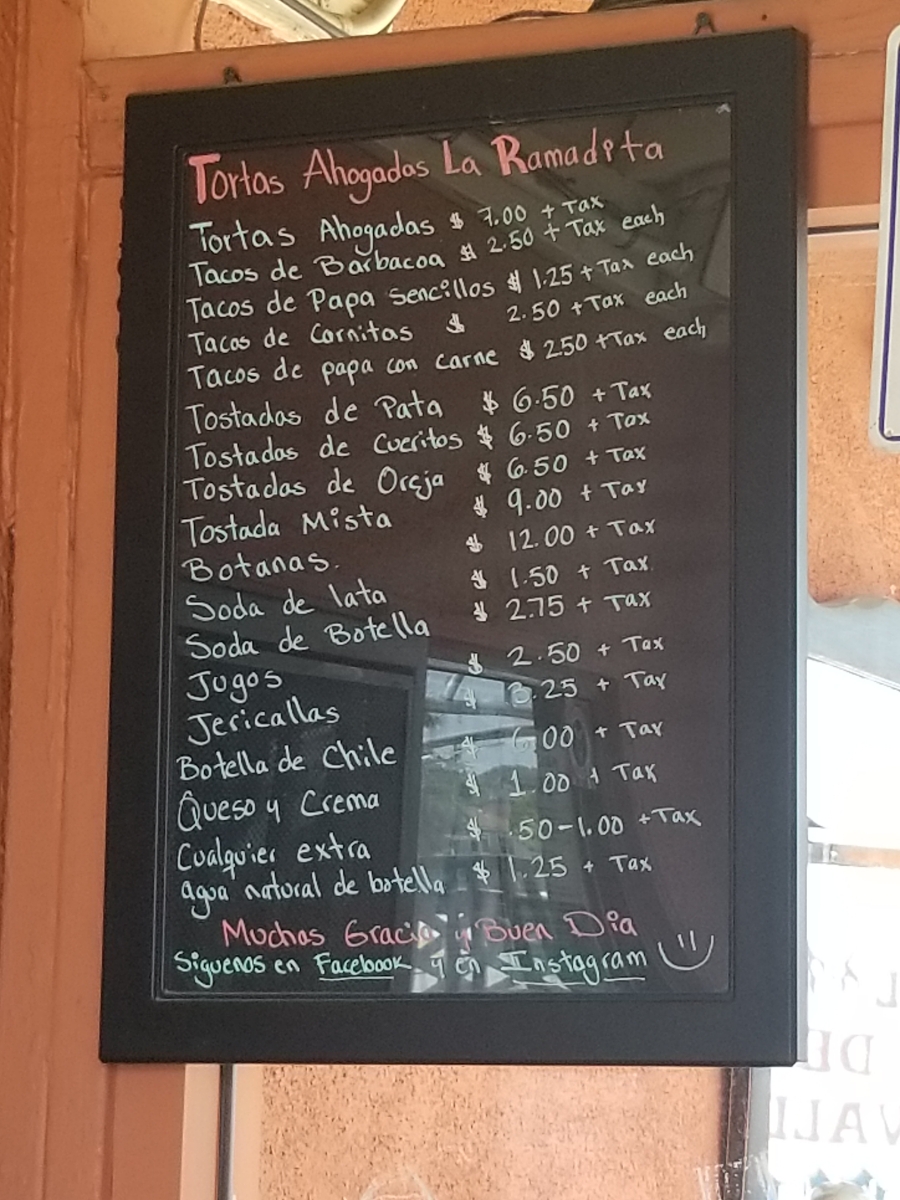 Tortas Ahogadas La Ramadita
Tortas Ahogadas $ 7.00 + Tax
Tacos de Barbacoa $ 2.50 + Tax each
Tacos de Papa sencillos $ 1.25 + Tax each
Tacos de Carnitas $ 2.50 + Tax each
Tacos de papa con carne $ 250 + Tax each
Tostadas de Pata $ 6.50 + Tax
Tostadas de Cueritos $ 6.50 + Tax
Tostadas de Oreja $ 6.50 + Tax
Tostada Mista $ 9.00 + Tax
Botanas. $ 12.00 + Tax
Soda de lata $ 1.50 + Tax
Soda de Botella $ 2.75 + Tax
Jugos $ 2.50 + Tax
Jericallas $ 3.25 + Tax
Botella de Chile $ 6.00 + Tax
Queso y Crema $ 1.00 + Tax
Cualquier extra $ .50-1.00 + Tax
agua natural de botella $ 1.25 + Tax
Muchas Gracias y Buen Dia
Siguenos en Facebook y en Instagram
DE